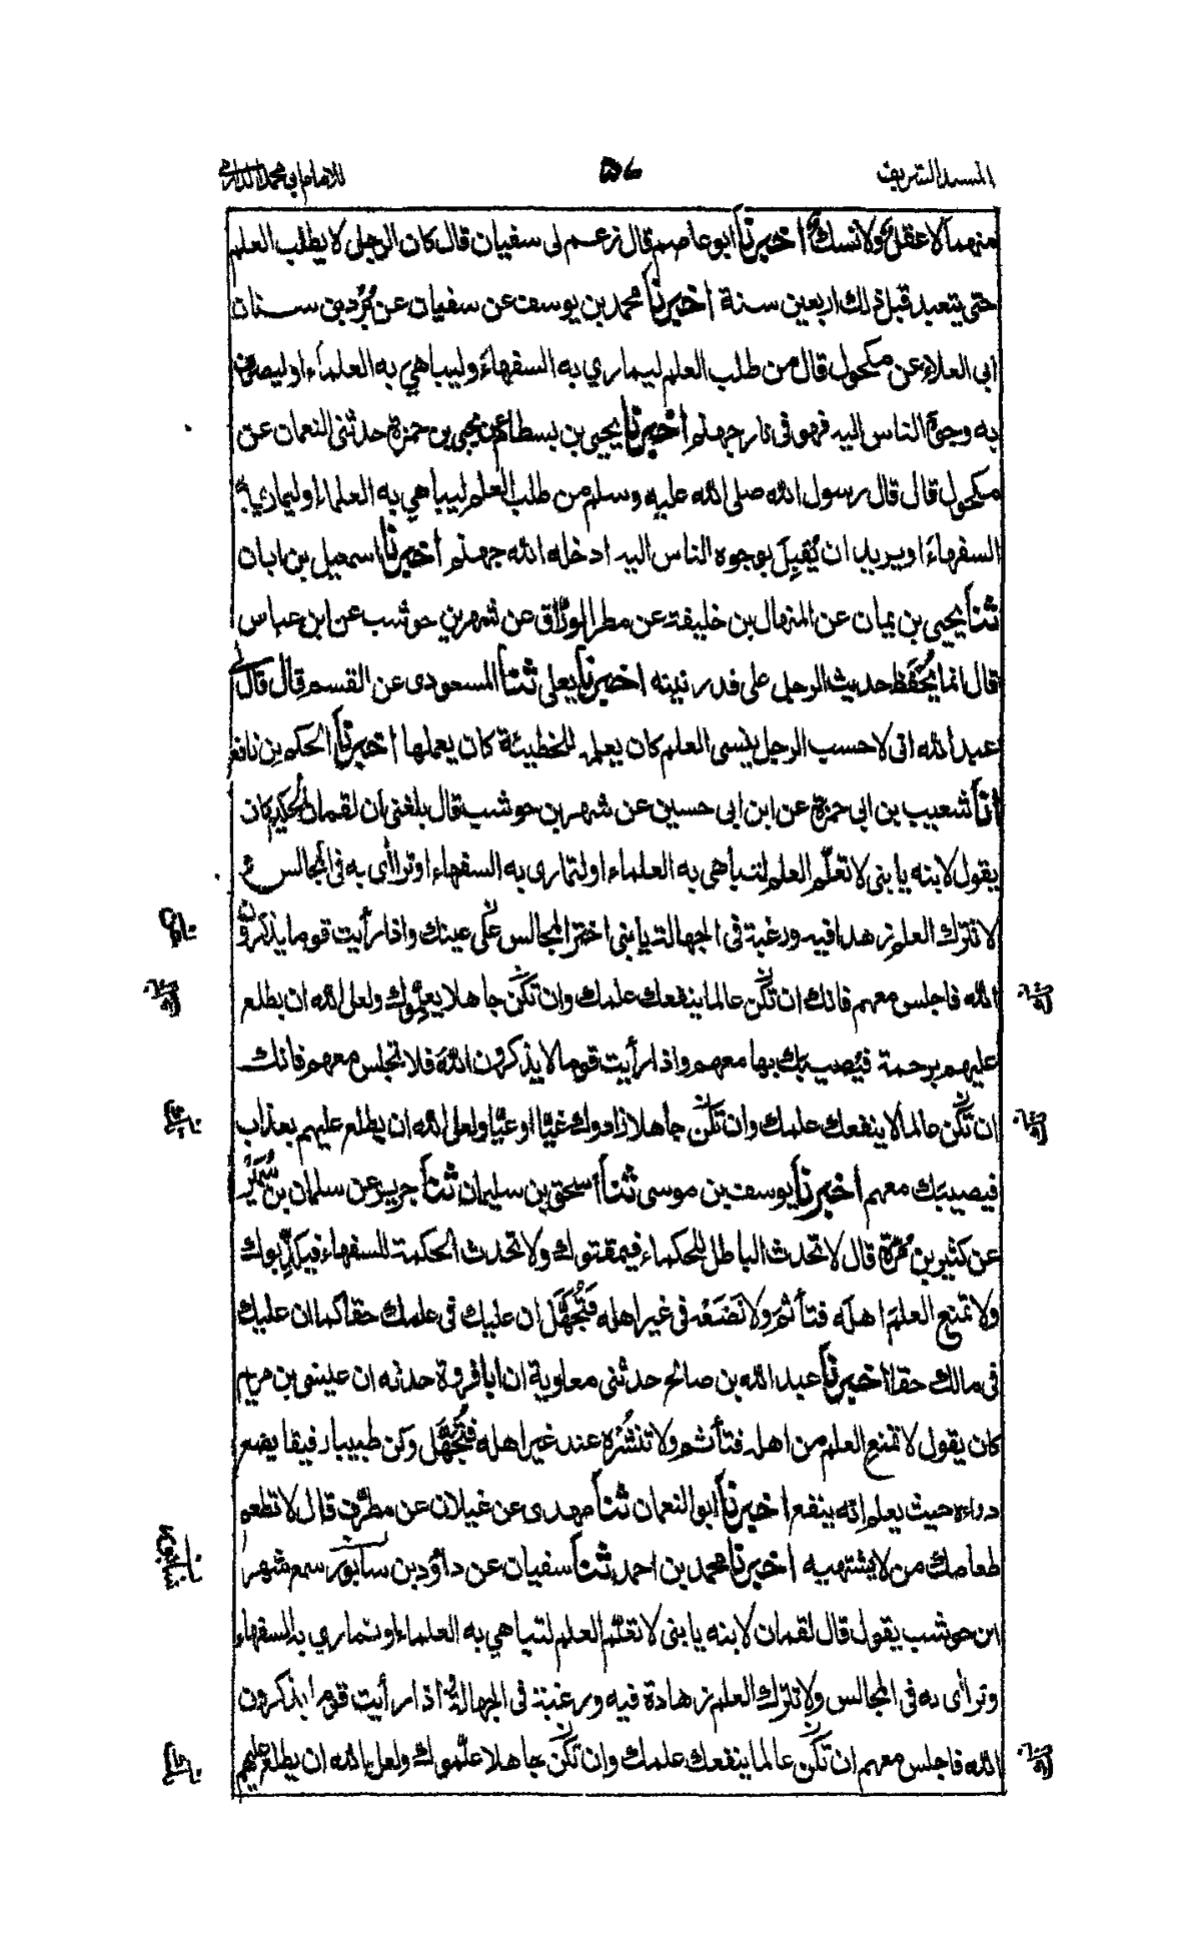 المسند الشريف
٥٧
للامام ابي محمد الدارمي
منهما لا عقلٌ ولا نسكٌ اخبرنا ابو عاصم قال زعم لى سفيان قال كان الرجل لا يطلب العلم
حتى يتعبد قبل ذلك اربعين سنة اخبرنا محمد بن يوسف عن سفيان عن بُرْد بن سنان
ابى العلاء عن مكحول قال من طلب العلم ليمارى به السفهاءَ وليباهي به العلماءَ او ليصرف
به وجوهَ الناس اليه فهو فى نار جهنم اخبرنا يحيى بن بسطام عن يحيى بن حمزة حدثنى النعمان عن
مكحول قال قال رسول الله صلى الله عليه وسلم من طلب العلم ليباهي به العلماء او ليماري به
السفهاءَ او يريد ان يُقبِلَ بوجوه الناس اليه ادخله الله جهنم اخبرنا اسمعيل بن ابان
ثنا يحيى بن يمان عن المنهال بن خليفة عن مطر الورّاق عن شهر بن حوشب عن ابن عباس
قال انما يُحْفَظ حديث الرجل على قدر نيته اخبرنا يعلى ثنا المسعودى عن القسم قال قال لى
عبد الله انى لاحسب الرجل ينسى العلم كان يعلمه للخطيئة كان يعملها اخبرنا الحكم بن نافع
انا شعيب بن ابى حمزة عن ابن ابى حسين عن شهر بن حوشب قال بلغنى ان لقمان الحكيم كان
يقول لابنه يا بنى لا تعلّم العلم لتباهى به العلماء او لتمارى به السفهاء او ترائى به فى المجالس و
لا تترك العلم زهدا فيه ورغبة فى الجهالة يا بنى اختر المجالس على عينك واذا رأيت قوما يذكرون
الله فاجلس معهم فانك ان تكن عالما ينفعك علمك وان تكن جاهلا يعلّموك ولعل الله ان يطلع
عليهم برحمة فيُصيبَك بها معهم واذا رأيت قوما لا يذكرون اللهَ فلا تجلس معهم فانك
ان تكن عالما لا ينفعك علمك وان تكن جاهلا زادوك غيًّا او عيًّا ولعل الله ان يطلع عليهم بعذاب
فيصيبَك معهم اخبرنا يوسف بن موسى ثنا اسحق بن سليمان ثنا جرير عن سلمان بن سُمَيْر
عن كثير بن مُرّة قال لا تحدث الباطل للحكماء فيمقتوك ولا تحدث الحكمة للسفهاء فيكذّبوك
ولا تمنع العلمَ اهله فتأثمَ ولا تَضَعْه فى غير اهله فتُجَهَّلَ ان عليك فى علمك حقا كما ان عليك
فى مالك حقا اخبرنا عبد الله بن صالح حدثنى معاوية ان ابا فروة حدثه ان عيسى بن مريم
كان يقول لا تمنع العلم من اهله فتأثم ولا تنشُرْه عند غير اهله فتُجَهَّل وكن طبيبا رفيقا يضع
دواءه حيث يعلم انه ينفع اخبرنا ابو النعمان ثنا مهدى عن غيلان عن مطرّف قال لا تطعم
طعامك من لا يشتهيه اخبرنا محمد بن احمد ثنا سفيان عن داؤد بن سابور سمع شهر
ابن حوشب يقول قال لقمان لابنه يا بنى لا تعلّم العلم لتباهي به العلماء او تماري به السفهاء
وترائى به فى المجالس ولا تترك العلم زهادة فيه ورغبة فى الجهالة اذا رأيت قوما يذكرون
الله فاجلس معهم ان تكن عالما ينفعك علمك وان تكن جاهلا علّموك ولعل الله ان يطلع عليهم